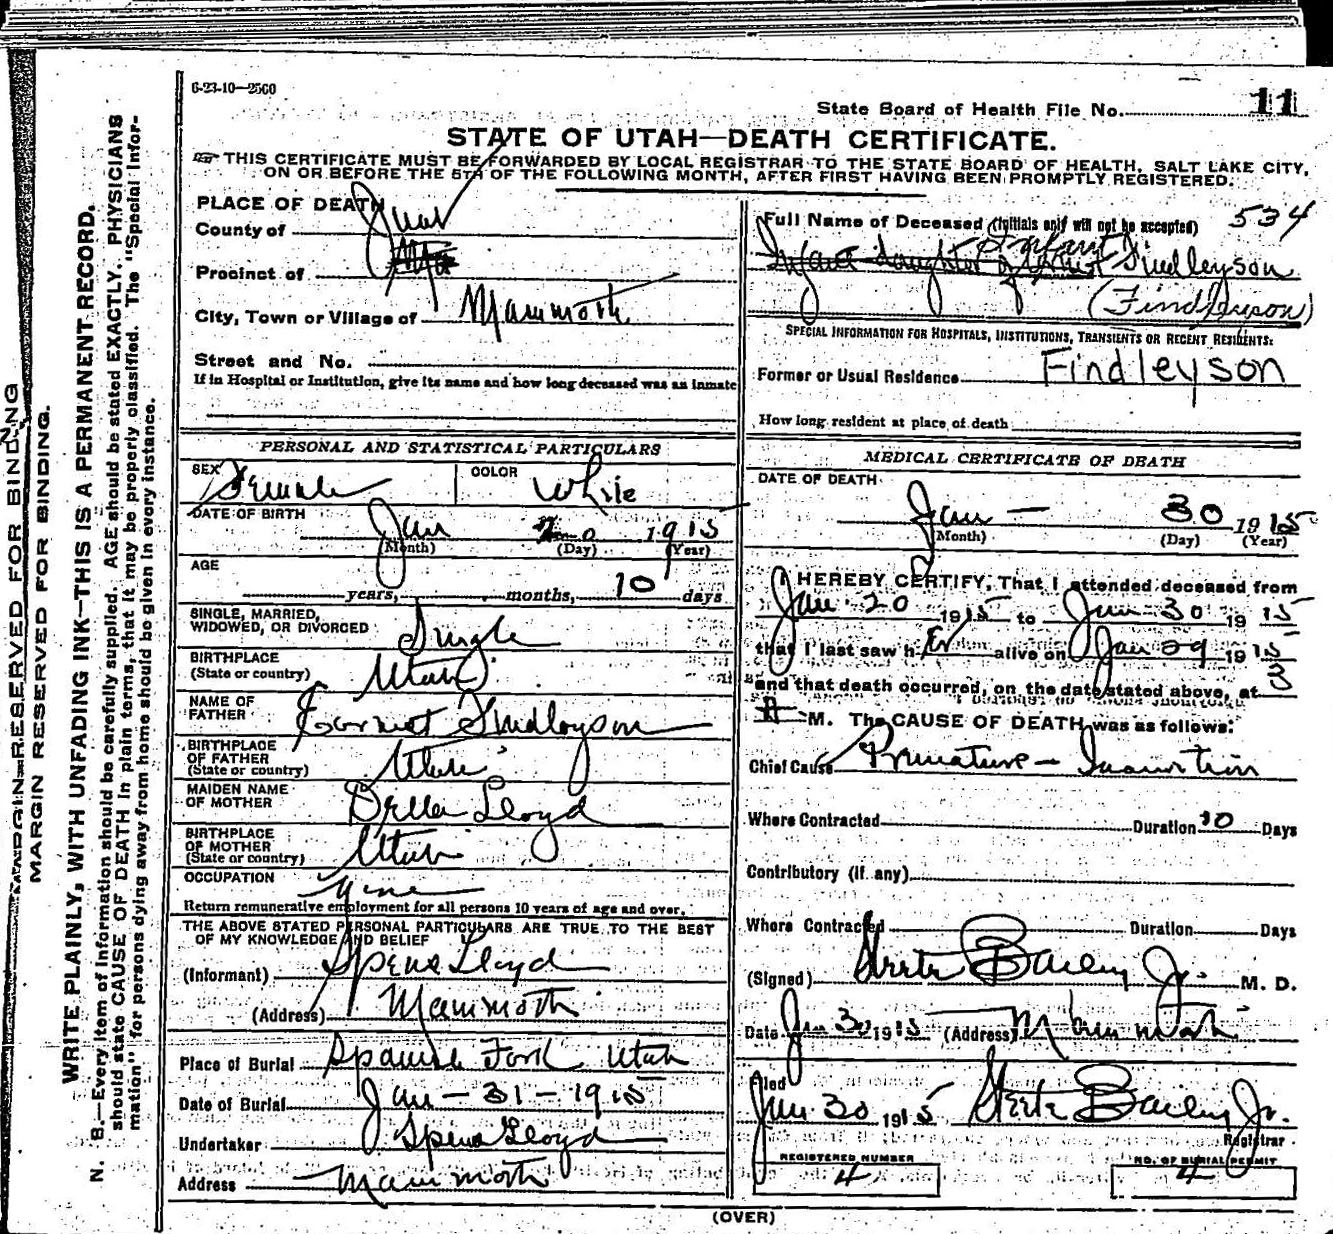 6-23-10—2560
State Board of Health File No. 11
STATE OF UTAH—DEATH CERTIFICATE.
THIS CERTIFICATE MUST BE FORWARDED BY LOCAL REGISTRAR TO THE STATE BOARD OF HEALTH, SALT LAKE CITY,
ON OR BEFORE THE 5TH OF THE FOLLOWING MONTH, AFTER FIRST HAVING BEEN PROMPTLY REGISTERED.
MARGIN RESERVED FOR BINDING
MARGIN RESERVED FOR BINDING.
WRITE PLAINLY, WITH UNFADING INK—THIS IS A PERMANENT RECORD.
N. B.—Every item of information should be carefully supplied. AGE should be stated EXACTLY. PHYSICIANS
should state CAUSE OF DEATH in plain terms, that it may be properly classified. The "Special Infor-
mation" for persons dying away from home should be given in every instance.
PLACE OF DEATH
County of Juab
Precinct of
City, Town or Village of Mammoth
Street and No.
If in Hospital or Institution, give its name and how long deceased was an inmate
PERSONAL AND STATISTICAL PARTICULARS
SEX Female COLOR White
DATE OF BIRTH
Jan 20 1915
(Month) (Day) (Year)
AGE
years, months, 10 days
SINGLE, MARRIED,
WIDOWED, OR DIVORCED Single
BIRTHPLACE
(State or country) Utah
NAME OF
FATHER Earnest Findleyson
BIRTHPLACE
OF FATHER
(State or country) Utah
MAIDEN NAME
OF MOTHER Della Lloyd
BIRTHPLACE
OF MOTHER
(State or country) Utah
OCCUPATION None
Return remunerative employment for all persons 10 years of age and over.
THE ABOVE STATED PERSONAL PARTICULARS ARE TRUE TO THE BEST
OF MY KNOWLEDGE AND BELIEF
(Informant) Spens Lloyd
(Address) Mammoth
Place of Burial Spanish Fork Utah
Date of Burial Jan - 31 - 1915
Undertaker Spens Lloyd
Address Mammoth
Full Name of Deceased (Initials only will not be accepted) 534
Infant
Infant daughter of Findleyson
(Findleyson)
SPECIAL INFORMATION FOR HOSPITALS, INSTITUTIONS, TRANSIENTS OR RECENT RESIDENTS:
Former or Usual Residence Findleyson
How long resident at place of death
MEDICAL CERTIFICATE OF DEATH
DATE OF DEATH
Jan — 30 1915
(Month) (Day) (Year)
I HEREBY CERTIFY, That I attended deceased from
Jan 20 1915 to Jan 30 1915
that I last saw h er alive on Jan 29 1915
and that death occurred, on the date stated above, at 3
A M. The CAUSE OF DEATH was as follows:
Chief Cause Premature - Inanition
Where Contracted Duration 10 Days
Contributory (if any)
Where Contracted Duration Days
(Signed) Steele Bailey Jr. M. D.
Date Jan 30 1915 (Address) Mammoth
Filed
Jan 30 1915 Steele Bailey Jr.
Registrar
REGISTERED NUMBER
4
NO. OF BURIAL PERMIT
4
(OVER)